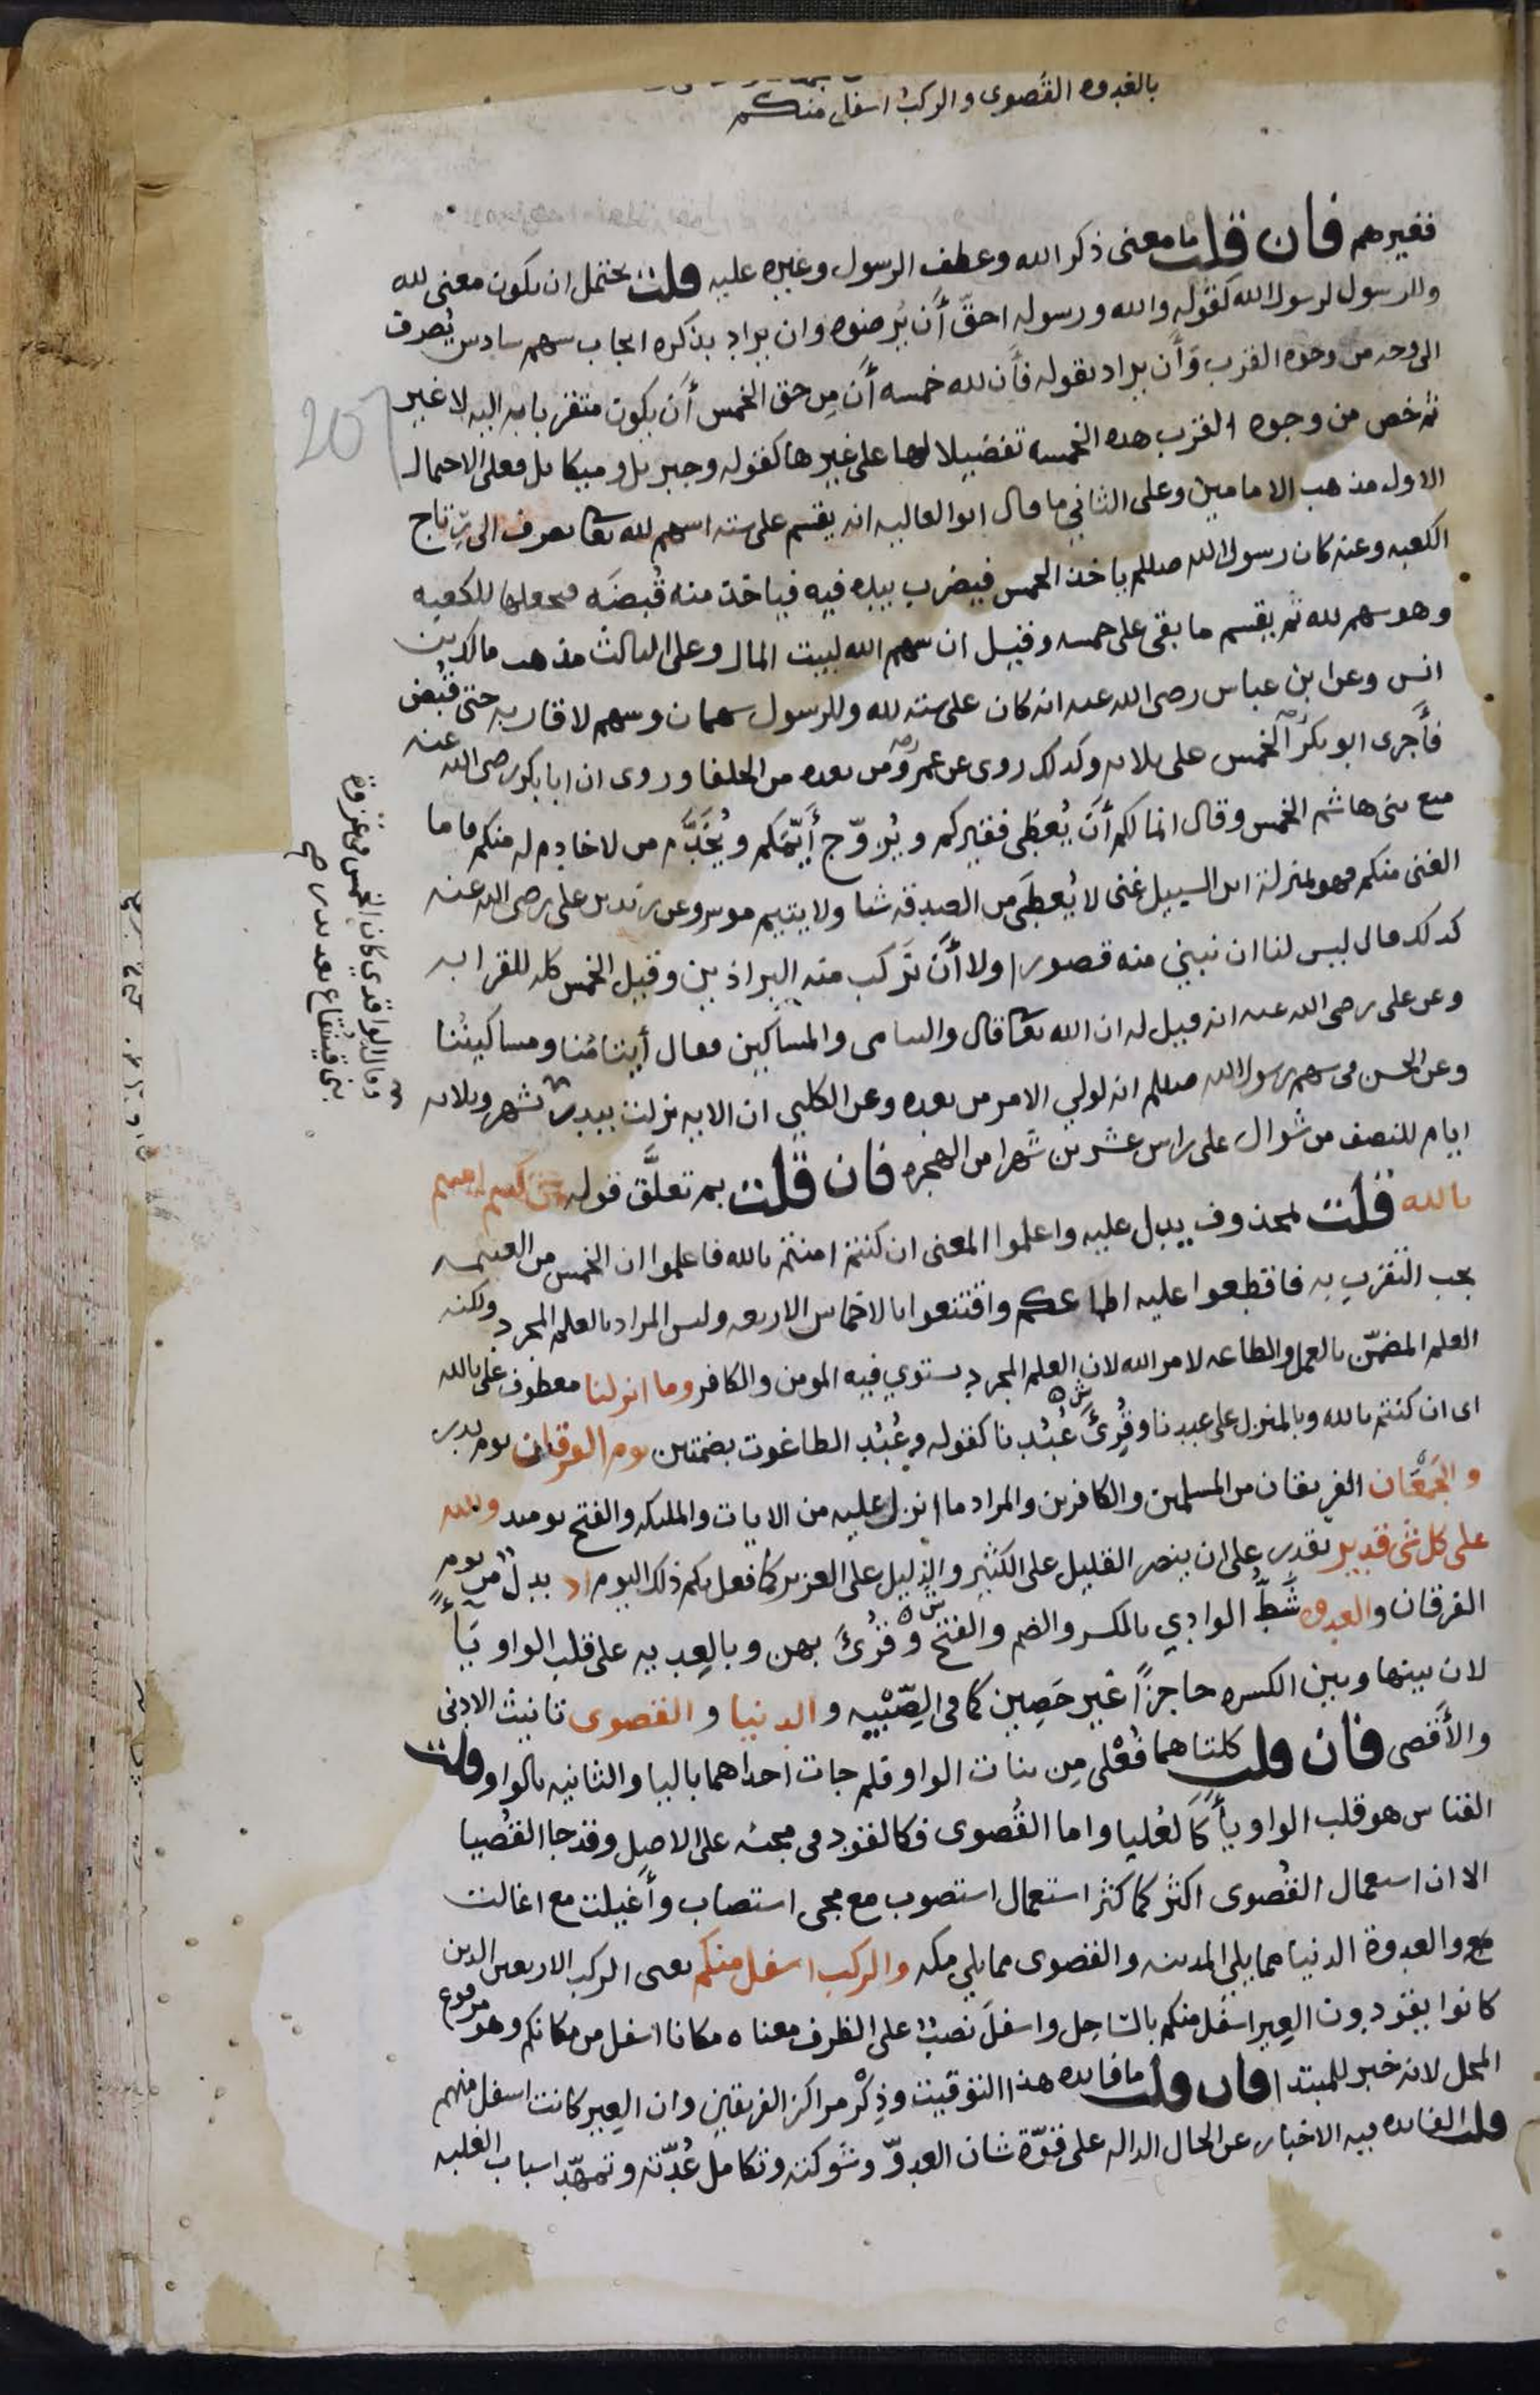 بالعدوه القُصوى والركب اسفل منكم
فقيرهم فان قلت ما معنى ذكر الله وعطف الرسول وغيره عليه قلت يحتمل ان يكون معنى لله
وللرسول لرسول الله كقوله والله ورسوله احقّ أن يُرضوه وان يراد بذكره ايجاب سهم سادس يُصرف
الى وجه من وجوه القرب وَأن يراد بقوله فأن لله خمسه أنّ مِن حق الخمس أن يكون متقربا به اليه لا غير
ثم خص من وجوه القرب هده الخمسه تفضيلا لها على غيرها كقوله وجبريل وميكايل فعلى الاحمال
الاول مذهب الامامين وعلى الثاني ما قال ابو العاليه انه يقسم على سته اسهم لله تعا يصرف الى رِتاج
الكعبه وعنه كان رسول الله صللم ياخذ الخمس فيضرب بيده فيه فياخذ منه قُبضَه فيجعلها للكعبه
وهو سهم لله ثم يقسم ما بقى على خمسه وقيل ان سهم الله لبيت المال وعلى الثالث مذهب مالك بن
انس وعن ابن عباس رضى الله عنه انه كان على سته لله وللرسول سهمان وسهم لاقاربه حتى قُبض
فأَجرى ابو بكر الخمس على ثلاثه وكذلك روى عن عمر ومن بعده من الخلفا وروى ان ابا بكر رضى الله عنه
منع بنى هاشم الخمس وقال انما لكم أن يُعطى فقيركم ويُزوّج أَيّمكم ويُخدَّم من لا خادم له منكم فاما
الغنى منكم فهو بمنزلة ابن السبيل غنى لا يُعطى من الصدقه شيا ولا يتيم موسر وعن زيد بن على رضى الله عنه
كذلك قال ليس لنا ان نبني منه قصورا ولا أَن نركب منه البراذين وقيل الخمس كله للقرابه
وعن على رضى الله عنه انه قيل له ان الله تعا قال واليتامى والمساكين فقال أيتامُنا ومساكينُنا
وعن الحسن فى سهم رسول الله صللم انه لولي الامر من بعده وعن الكلبي ان الايه نزلت ببدر
وقال الواقدي كان الخمس فى غزوة
بنى قينُقاع بعد بدر بشهر وثلاثه
ايام للنصف من شوال على راس عشرين شهرا من الهجره فان قلت بم تعلّق قوله ان كنتم امنتم
بالله قلت بمحذوف يدل عليه واعلموا المعنى ان كنتم امنتم بالله فاعلموا ان الخمس من الغنيمه
يجب التقرب به فاقطعوا عليه اطماعكم واقتنعوا بالاخماس الاربعه وليس المراد بالعلم المجرد ولكنه
العلم المضمّن بالعمل والطاعه لامر الله لان العلم المجرد يستوي فيه المومن والكافر وما انزلنا معطوف على بالله
اى ان كنتم بالله وبالمنزل على عبدنا وقُرِئَ عُبُدنا كقوله وعُبُد الطاغوت بضمتين يوم الفرقان يوم بدر
والجَمْعَان الفريقان من المسلمين والكافرين والمراد ما انزل عليه من الايات والمليكه والفتح يوميد والله
على كل شى قدير يقدر على ان ينصر القليل على الكثير والذليل على العزيز كما فعل بكم ذلك اليوم اذ بدل من يوم
الفرقان والعدوه شَطّ الوادي بالكسر والضم والفتح وقُرئَ بهن وبالعديه على قلب الواو يَاءً
لان بينها وبين الكسره حاجزًا غير حَصِين كما فى الصِّبْيه والدنيا والقصوى تانيث الادنى
والأَقصى فان قلت كلتاهما فُعْلى مِن بنات الواو فلم جات احداهما باليا والثانيه بالواو قلت
القياس هو قلب الواو ياءً كالعُليا واما القُصوى فكالقود فى مجيئه على الاصل وقد جا القُصيا
الا ان استعمال القُصوى اكثر كما كثر استعمال استصوب مع مجى استصاب وأَغيلت مع اغالت
والعدوة الدنيا مما يلي المدينه والقصوى مما يلي مكه والركب اسفل منكم يعنى الركب الاربعين الدين
كانوا يقودون العير اسفل منكم بالسّاحِل واسفلَ نصبٌ على الظرف معناه مكانا اسفل من مكانكم وهو مرفوع
المحل لانه خبر للمبتدا فان قلت ما فايده هذا التوقيت وذِكْر مراكز الفريقين وان العير كانت اسفل منهم
قلت الفايده فيه الاخبار عن الحال الداله على قوّة شان العدوّ وشوكته وتكامل عُدّته وتمهّد اسباب الغلبه
207